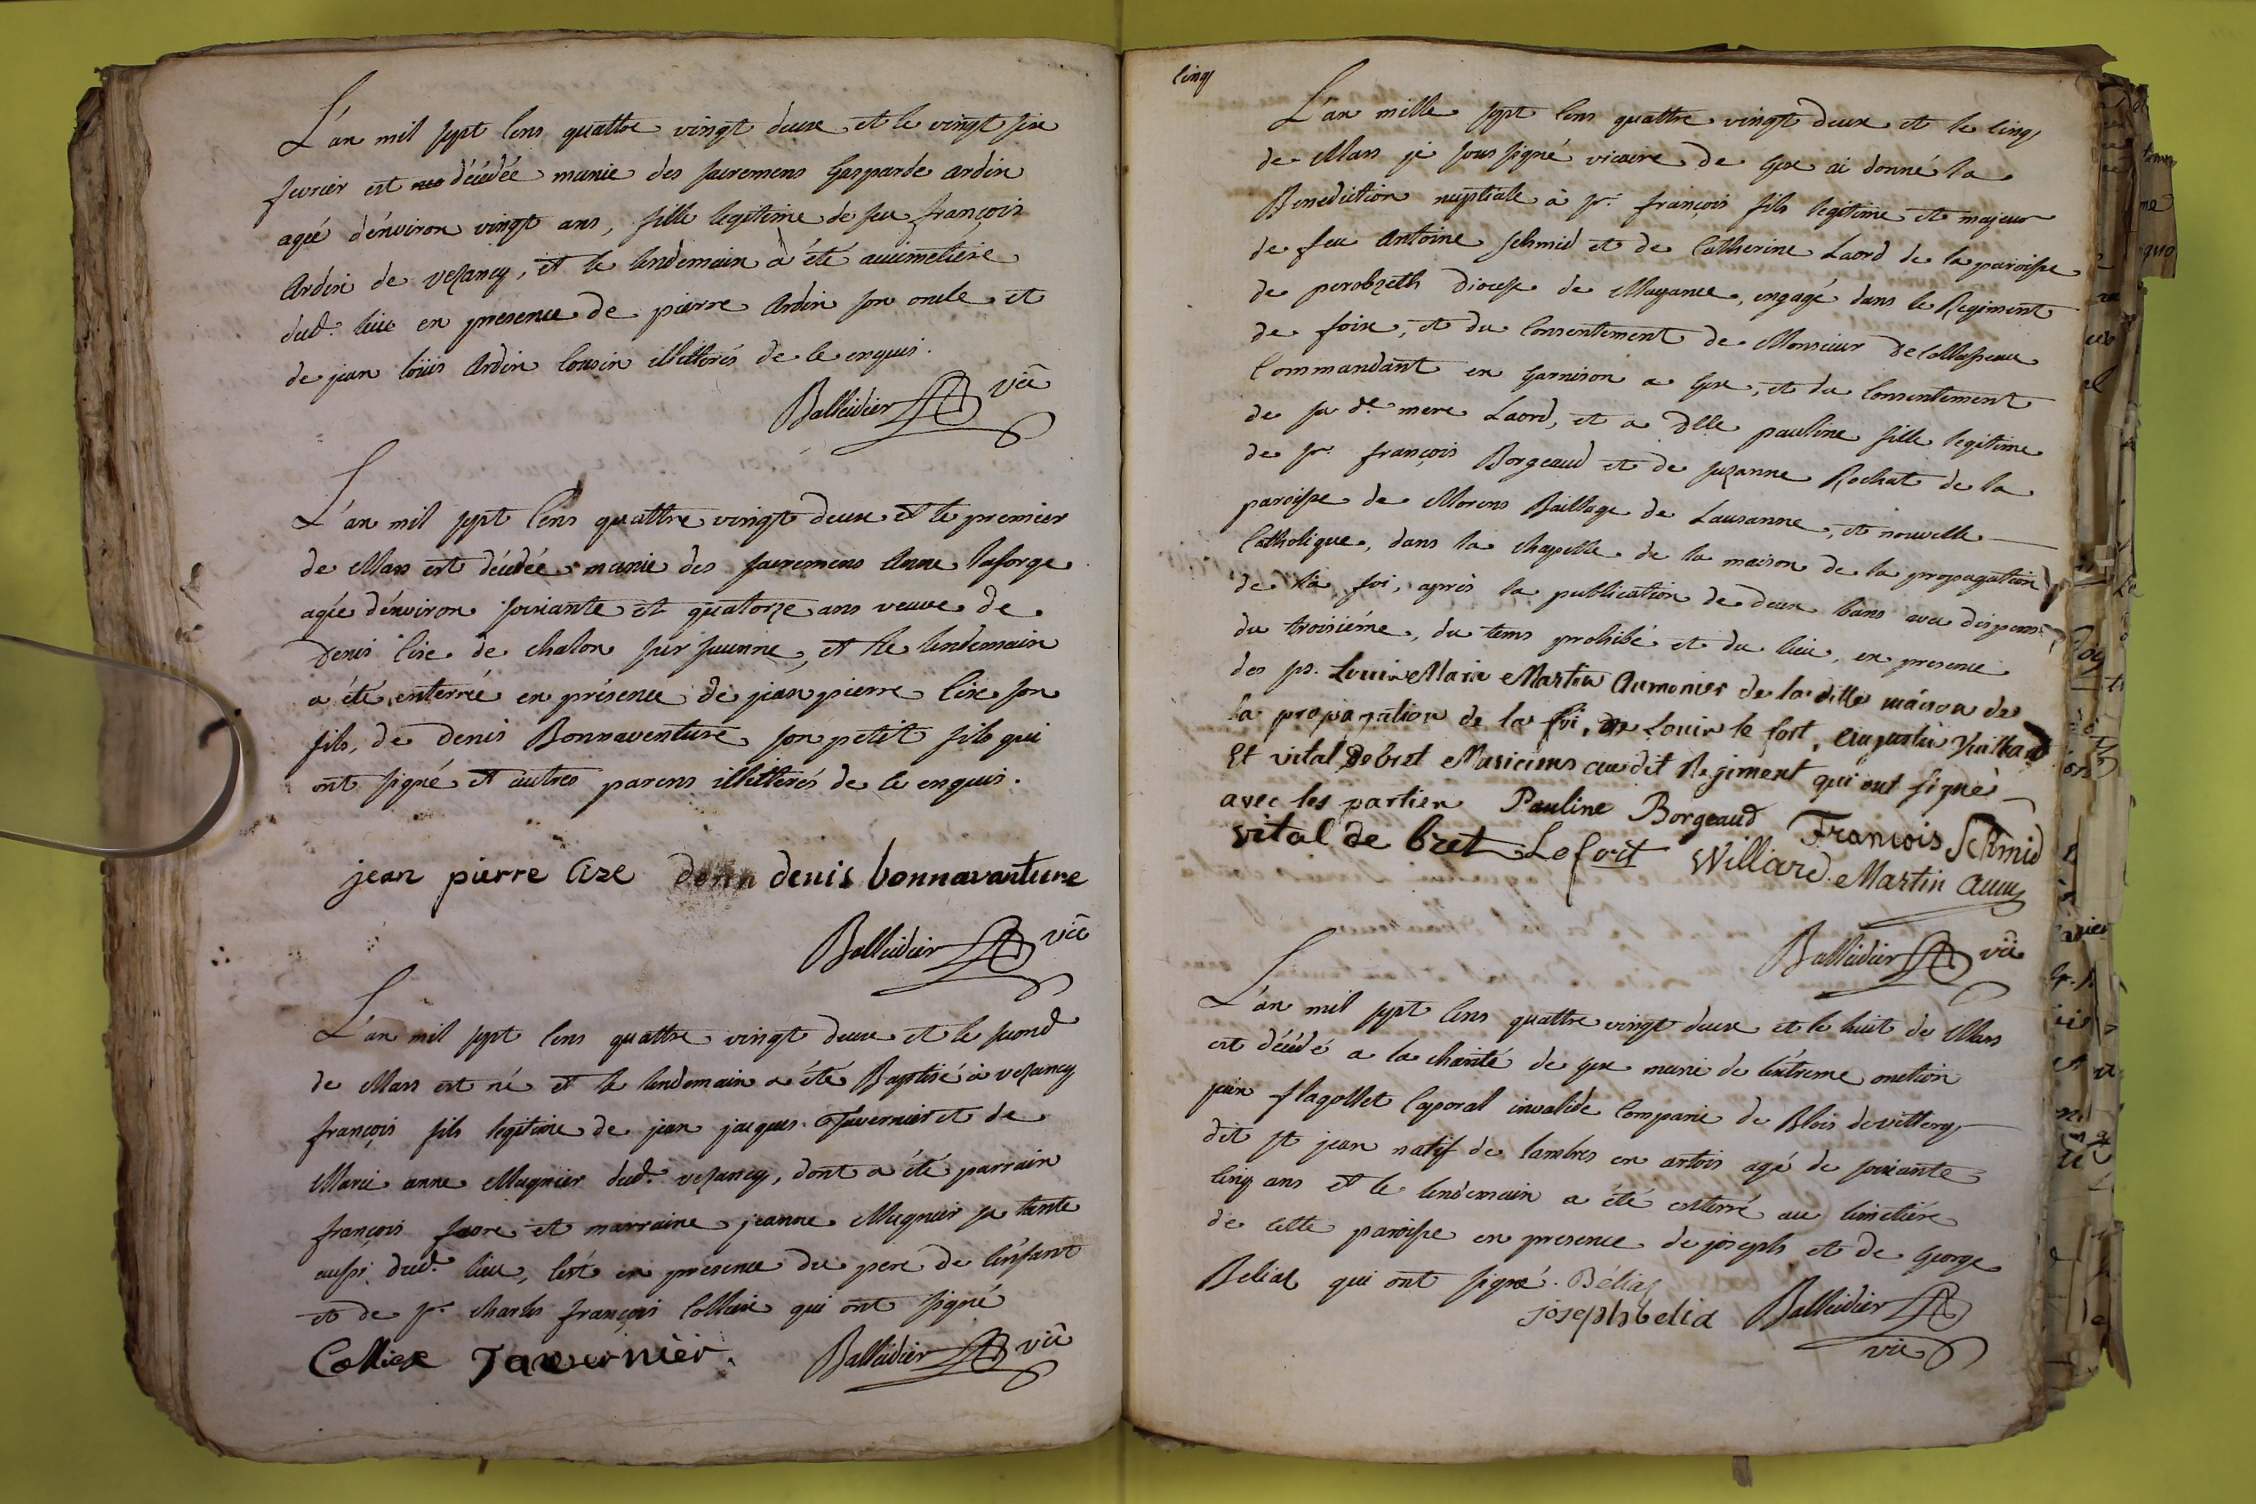 L'an mil sept cens quattre vingt deux et le vingt six
fevrier est décédée munie des sacremens Gasparde Ardin
agée d'énviron vingt ans, fille legitime de feu françois
Ardin de vesancy, et le lendemain a été au cimetiere
dud. lieu en presence de pierre Ardin son oncle et
de jean loüis Ardin cousin illitterés de ce enquis.
Balleidier vic
L'an mil sept cens quattre vingt deux et le premier
de Mars est décédée munie des sacremens Anne laforge
agée d'énviron soixante et quatorze ans veuve de
Denis de chalon sur saunne, et le lendemain
a été enterrée en présence de jean pierre son
fils, de Denis Bonnaventure son petit fils qui
ont signé et autres parens illitterés de ce enquis.
jean pierre denis bonnavanture
Balleidier vic
L'an mil sept cens quattre vingt deux et le second
de Mars est né et le lendemain a été Baptisé à vesancy
françois fils legitime de jean jacques Tavernier et de
Marie anne Mugnier dud. vesancy, dont a été parrain
françois favre et marraine jeanne Mugnier sa tante
aussi dud. lieu, c'est en presence du pere de l'énfant
et de sr. charles françois Collieix qui ont signé
Colliex Tavernier.
Balleidier vic
cinq
L'an mille sept cens quattre vingt deux et le cinq
de Mars je sous signé vicaire de Gex ai donné la
Benediction nuptiale à sr. françois fils legitime et majeur
de feu Antoine schmid et de Catherine Laord de la paroisse
de diocese de Mayance, engagé dans le Regiment
de foix, et du consentement de Monsieur
Commandant en garnison a Gex, et du consentement
de sa de. mere Laord, et a Dlle pauline fille legitime
de sr. françois Borgeaud et de suzanne Rochat de la
paroisse de Morens Baillage de Lausanne, et nouvelle
Catholique, dans la chapelle de la maison de la propagation
de la foi, aprés la publication de deux bans avec dispense
du troisiéme, du tems prohibé et du lieu, en presence
des srs. Louis Marie Martin Aumonier de la ditte maison de
la propagation de la foi, de Louis le fort, augustin
Et vital debret Musiciens au dit Regiment qui ont signé
avec les parties Pauline Borgeaud
François Schmid
vital de bret Lefort Willard Martin aum
Balleidier vic
L'an mil sept cens quattre vingt deux et le huit de Mars
est décédé a la charité de gex muni de l'éxtreme onction
jean flagollet Caporal invalide Companie de Blois
dit st jean natif de lambres en artois agé de soixante
cinq ans et le lendemain a été enterré au cimétiére
de cette paroisse en presence de joseph et de George
Belias qui ont signé. Bélias
joseph belia Balleidier
vic